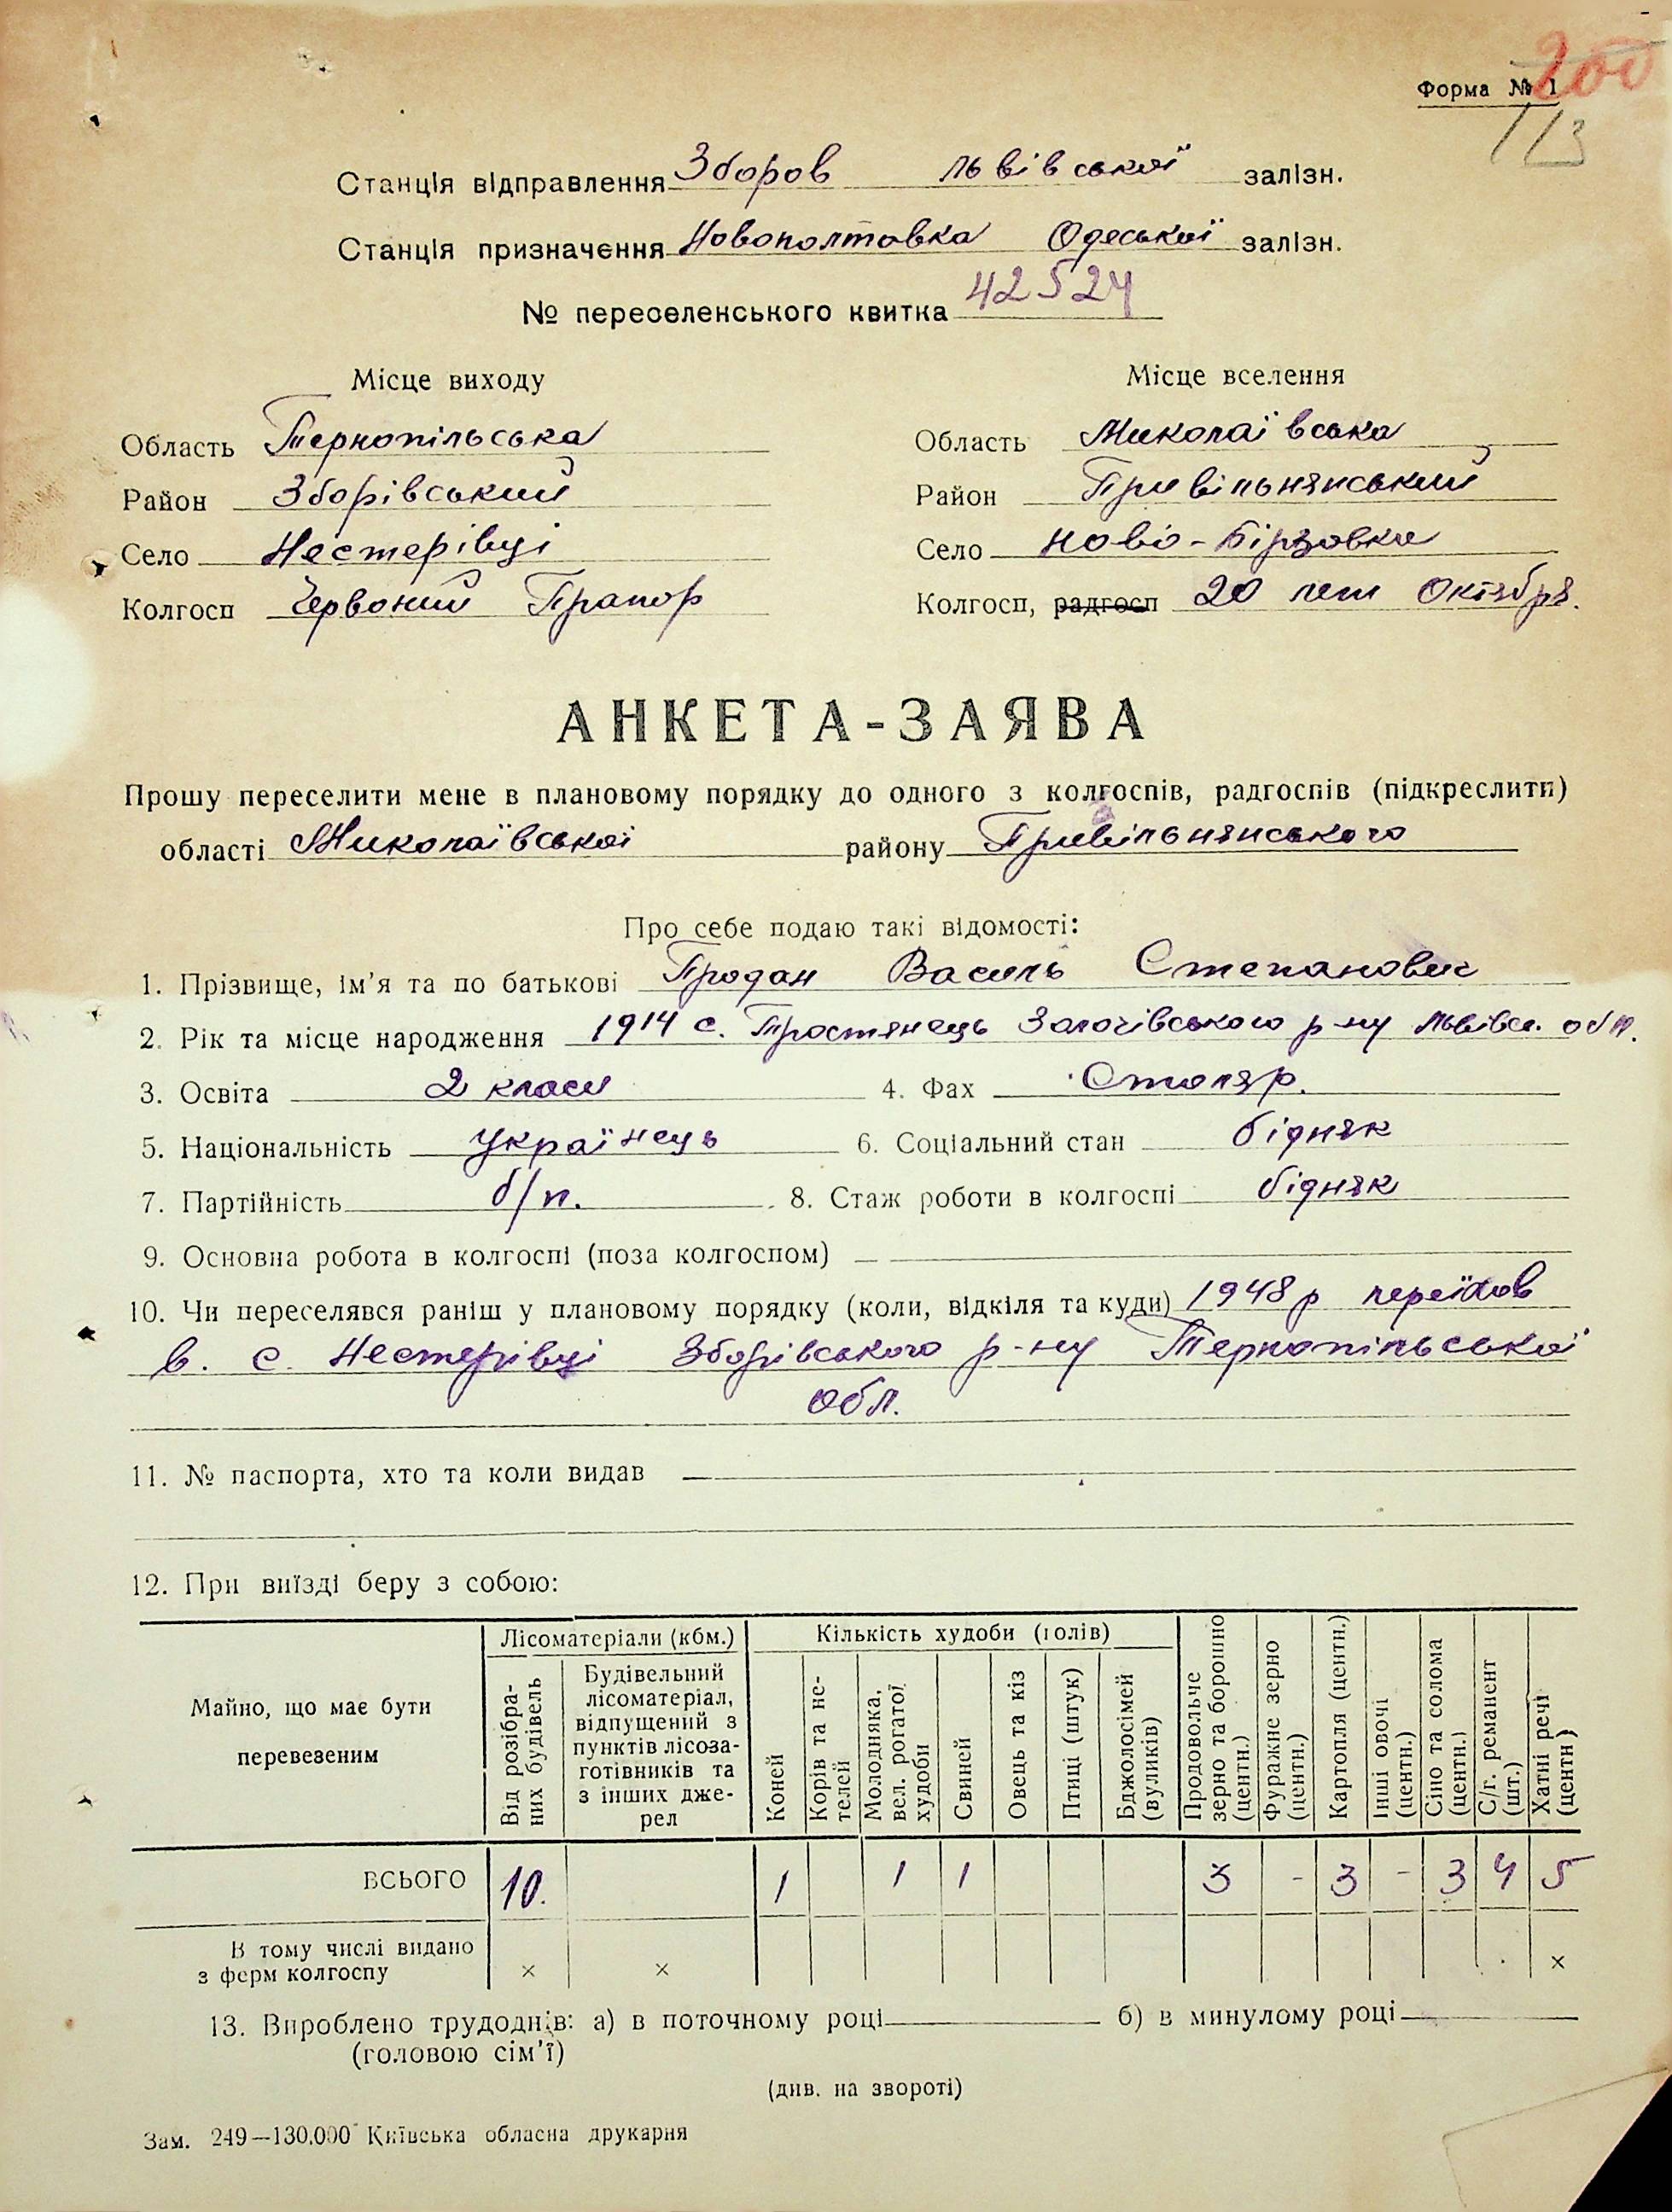 200
Форма № 1
113
Станція відправлення Зборов Львівської залізн.
Станція призначення Новополтовка Одеської залізн.
№ переселенського квитка 42524
Місце виходу
Місце вселення
Область Тернопільська
Область Миколаївська
Район Зборівський
Район Привільнянський
Село Нестерівці
Село Ново-Бірзовка
Колгосп Червоний Прапор
Колгосп, радгосп 20 лет Октября.
АНКЕТА-ЗАЯВА
Прошу переселити мене в плановому порядку до одного з колгоспів, радгоспів (підкреслити)
області Миколаївської району Привільнянського
Про себе подаю такі відомості:
1. Прізвище, ім'я та по батькові Продан Василь Степанович
2. Рік та місце народження 1914 с. Тростянець Золочівського р-ну Львівсь. обл.
3. Освіта 2 класи 4. Фах Столяр.
5. Національність українець 6. Соціальний стан бідняк
7. Партійність б/п. 8. Стаж роботи в колгоспі бідняк
9. Основна робота в колгоспі (поза колгоспом) —
10. Чи переселявся раніш у плановому порядку (коли, відкіля та куди) 1948 р переїхов
в. с. Нестерівці Зборівського р-ну Тернопільської
обл.
11. № паспорта, хто та коли видав —
12. При виїзді беру з собою:
Майно, що має бути
перевезеним
Лісоматеріали (кбм.)
Від розібра-
них будівель
Будівельний
лісоматеріал,
відпущений з
пунктів лісоза-
готівників та
з інших дже-
рел
Кількість худоби (голів)
Коней
Корів та не-
телей
Молодняка,
вел. рогатої
худоби
Свиней
Овець та кіз
Птиці (штук)
Бджолосімей
(вуликів)
Продовольче
зерно та борошно
(центн.)
Фуражне зерно
(центн.)
Картопля (центн.)
Інші овочі
(центн.)
Сіно та солома
(центн.)
С/г. реманент
(шт.)
Хатні речі
(центн)
ВСЬОГО 10. 1 1 1 3 - 3 - 3 4 5
В тому числі видано
з ферм колгоспу × × ×
13. Вироблено трудоднів: а) в поточному році б) в минулому році
(головою сім'ї)
(див. на звороті)
Зам. 249—130.000 Київська обласна друкарня